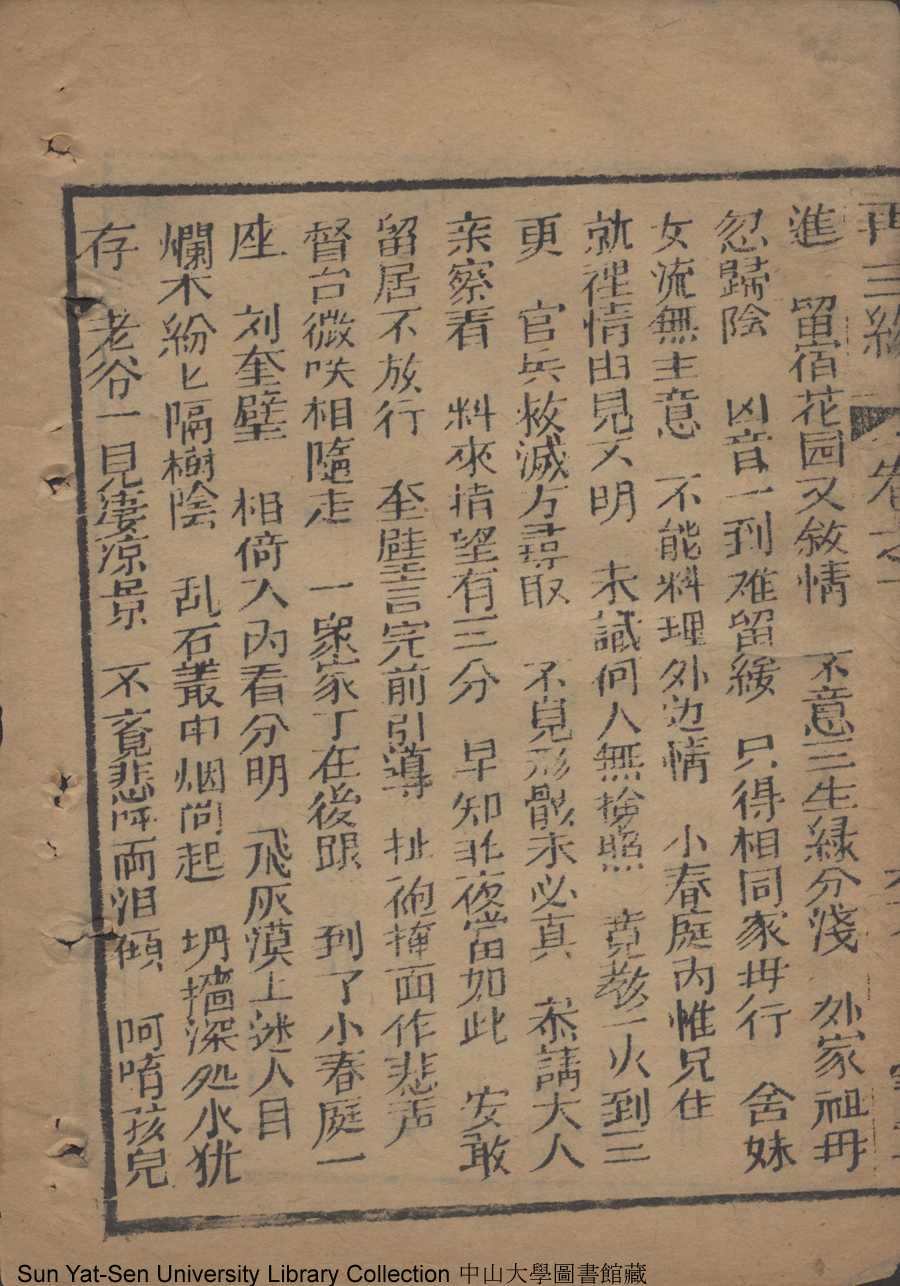 再三緣 卷之一
進 留宿花园又敘情 不意三生緑分淺 外家祖毋
忽歸陰 凶音一到难留緩 只得相同家毋行 舍妹
女流無主意 不能料理外边情 小春庭內惟兄住
就裡情由見又明 未識何人無撿照 竟教一火到三
更 官兵救滅方尋取 不見形骸未必真 恭請大人
亲察看 料來指望有三分 早知昨夜當如此 安敢
留居不放行 奎壁言完前引導 扯袍掩面作悲声
督台微咲相隨走 一衆家丁在後跟 到了小春庭一
座 刘奎壁 相倚入內看分明 飛灰漠上迷人目
爛木紛匕隔樹陰 乱石叢中烟尚起 坍墻深处水犹
存 老谷一見凄凉景 不覔悲呼両泪傾 阿唷孩兒
Sun Yat-Sen University Library Collection 中山大學圖書館藏